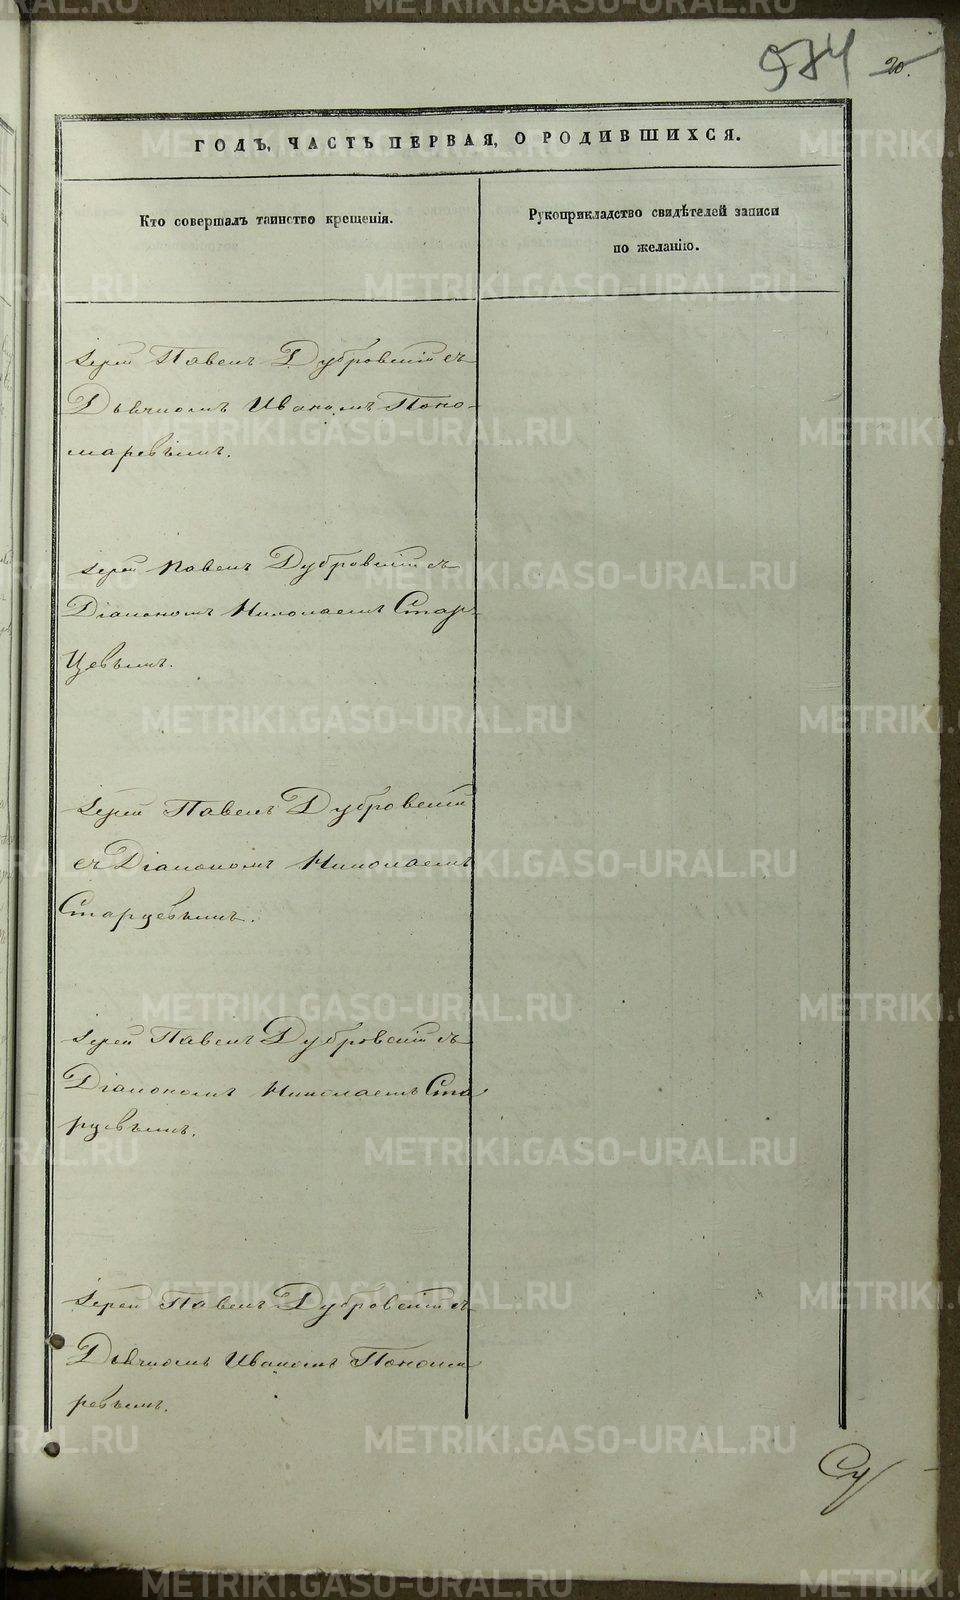 974 20.
ГОДЪ, ЧАСТЬ ПЕРВАЯ, О РОДИВШИХСЯ.
Кто совершалъ таинство крещенія.
Рукоприкладство свидѣтелей записи
по желанію.
Іерей Павелъ Дубровскій съ
Дьячкомъ Иваномъ Поно-
маревымъ.
Іерей Павелъ Дубровскій съ
Діакономъ Николаемъ Стар-
цевымъ.
Іерей Павелъ Дубровскій
съ Діакономъ Николаемъ
Старцевымъ.
Іерей Павелъ Дубровскій съ
Діакономъ Николаемъ Ста
рцевымъ.
Іерей Павелъ Дубровскій съ
Дьячкомъ Иваномъ Понома
ревымъ.
METRIKI.GASO-URAL.RU